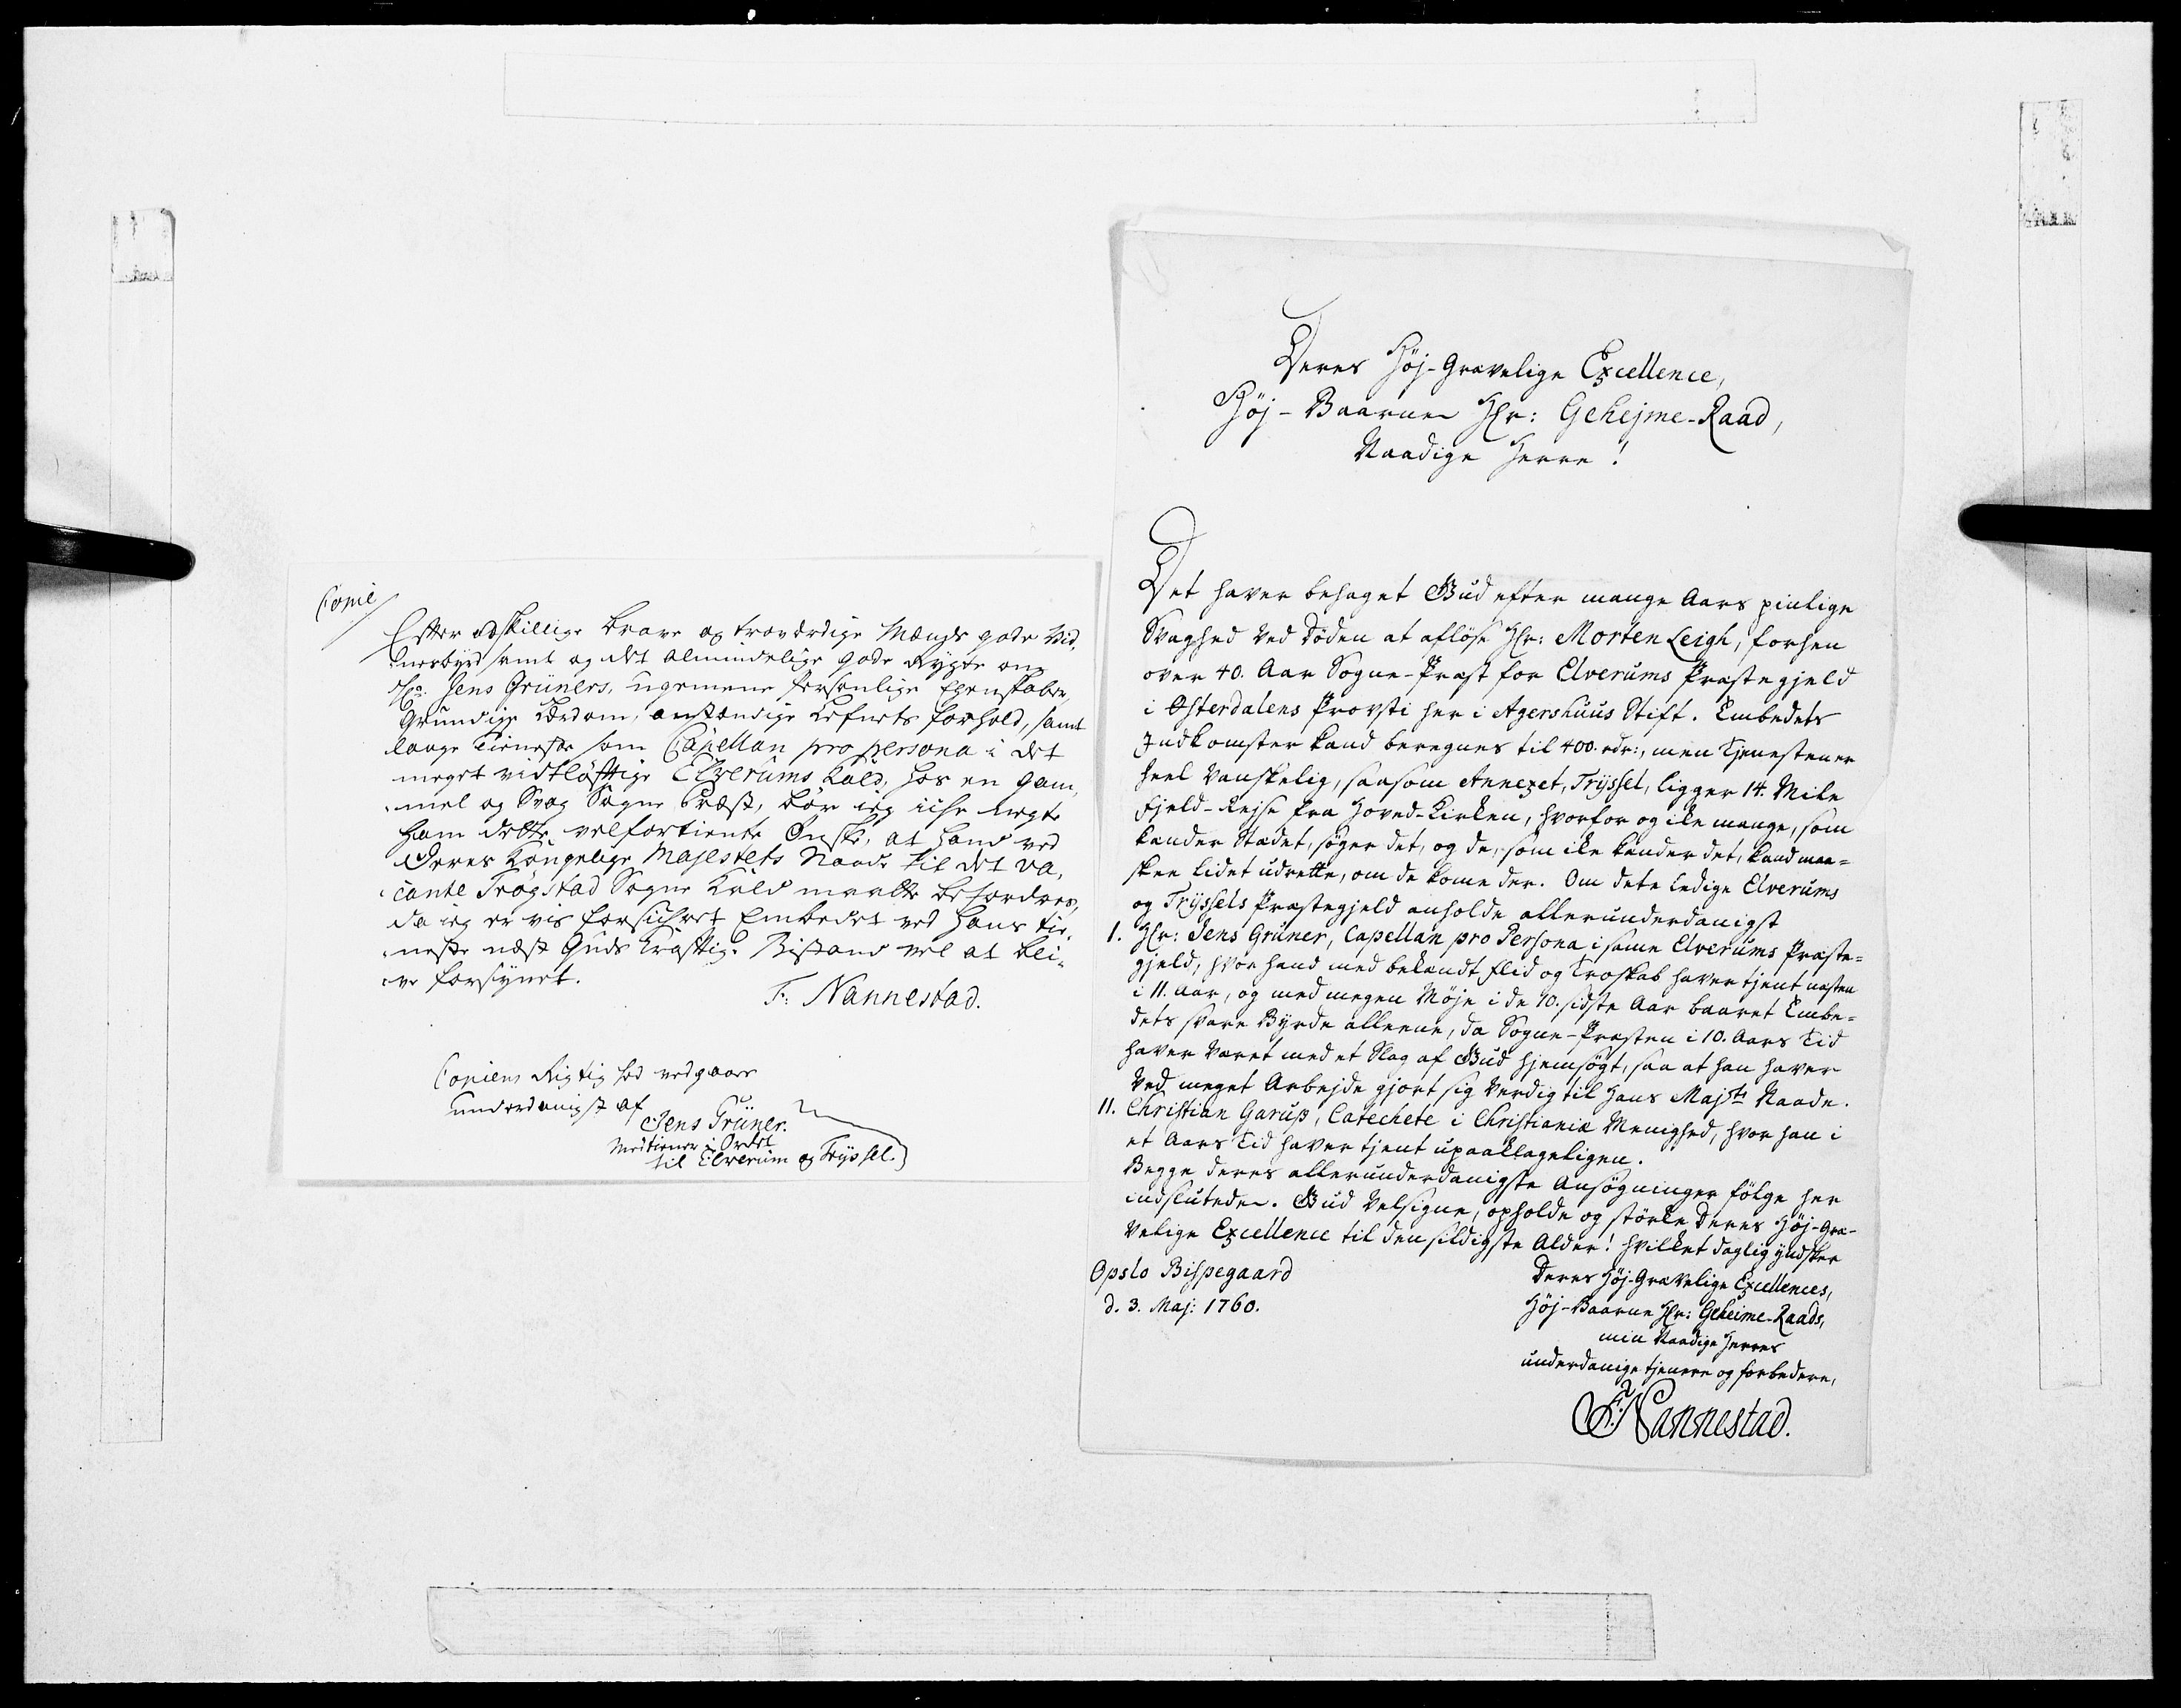 Copie
Efter adskillige brave og troværdige Mænds gode Vid,
nesbyrd samt og det almindelige gode Rygte om
Hr: Jens Grüners, ugemene personlige Egenskaber,
Grundige Lærdom, anstændige Lefnets forhold, samt
lange Tieneste som Capellan pro persona i det
meget vidtløftige Elverums Kald, hos en gam,
mel og Svag Sogne Præst, bør ieg iche negte
ham dette velfortiente Ønske, at hand ved
Deres Kongelige Majestets Naade til det va,
cante Trøgstad Sogne Kald maatte befordres,
da ieg er vis forsichret Embedet ved hans tie,
neste næst Guds kraftige Bistand vel at bli,
ve forsynet.
F: Nannestad.
Copiens Rigtighed vedgaaer
underdanigst af
Jens Grüner.
Medtiener i Ordet
til Elverum og Tryssel.
Deres Høj-Grevelige Excellence,
Høj-Baarne Hr: Gehejme-Raad,
Naadige Herre!
Det haver behaget Gud efter mange Aars pinlige
Svaghed ved Døden at afløse Hr: Morten Leigh, forhen
over 40. Aar Sogne-Præst for Elverums Præstegjeld
i Østerdalens Provsti her i Agershuus Stift. Embedets
Indkomster kand beregnes til 400. rdr:, men Tjenesten er
heel vanskelig, saasom Annexet, Tryssel, ligger 14. Mile
Fjeld-Rejse fra Hoved-Kirken, hvorfor og ike mange, som
kender Stædet, søger det, og de, som ike kender det, kand maa=
skee lidet udrette, om de kome der. Om dete ledige Elverums
og Tryssels Præstegjeld anholde allerunderdanigst
1. Hr: Jens Grüner, Capellan pro Persona i same Elverums Præste=
gjeld, hvor hand med bekandt Flid og Troskab haver tjent næsten
i 11. aar, og med megen Møje i de 10. sidste Aar baaret Embe=
dets svare Byrde alleene, da Sogne-Præsten i 10. Aars Tid
haver været med et Slag af Gud hjemsøgt, saa at han haver
ved meget Arbejde gjort sig verdig til Hans Majsts Naade.
11. Christian Garup, Catechete i Christianiæ Menighed, hvor han i
et Aars Tid haver tjent upaaklageligen.
Begge deres allerunderdanigste Ansøgninger følge her
indsluteden. Gud velsigne, opholde og størke Deres Høj-Gre-
velige Excellence til den sildigste Alder! hvilket daglig yndsker
Opslo Bispegaard
d. 3. Maj: 1760.
Deres Høj-Grævelige Excellences,
Høj-Baarne Hr: Geheime-Raads,
min Naadige Herres
underdanige tjenere og forbedere,
F: Nannestad.